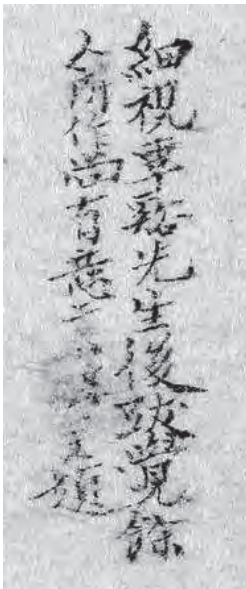 細視覃谿先生後跋覺餘
人所作尚有意題